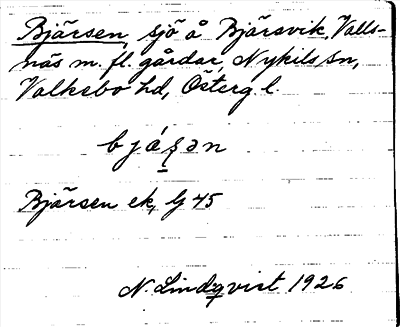 Bjärsen, sjö å Bjärsvik, Valls-
näs m. fl. gårdar, Nykils sn,
Valkebo hd, Österg. l.
Bjärsen ek, G 45
N. Lindqvist 1926